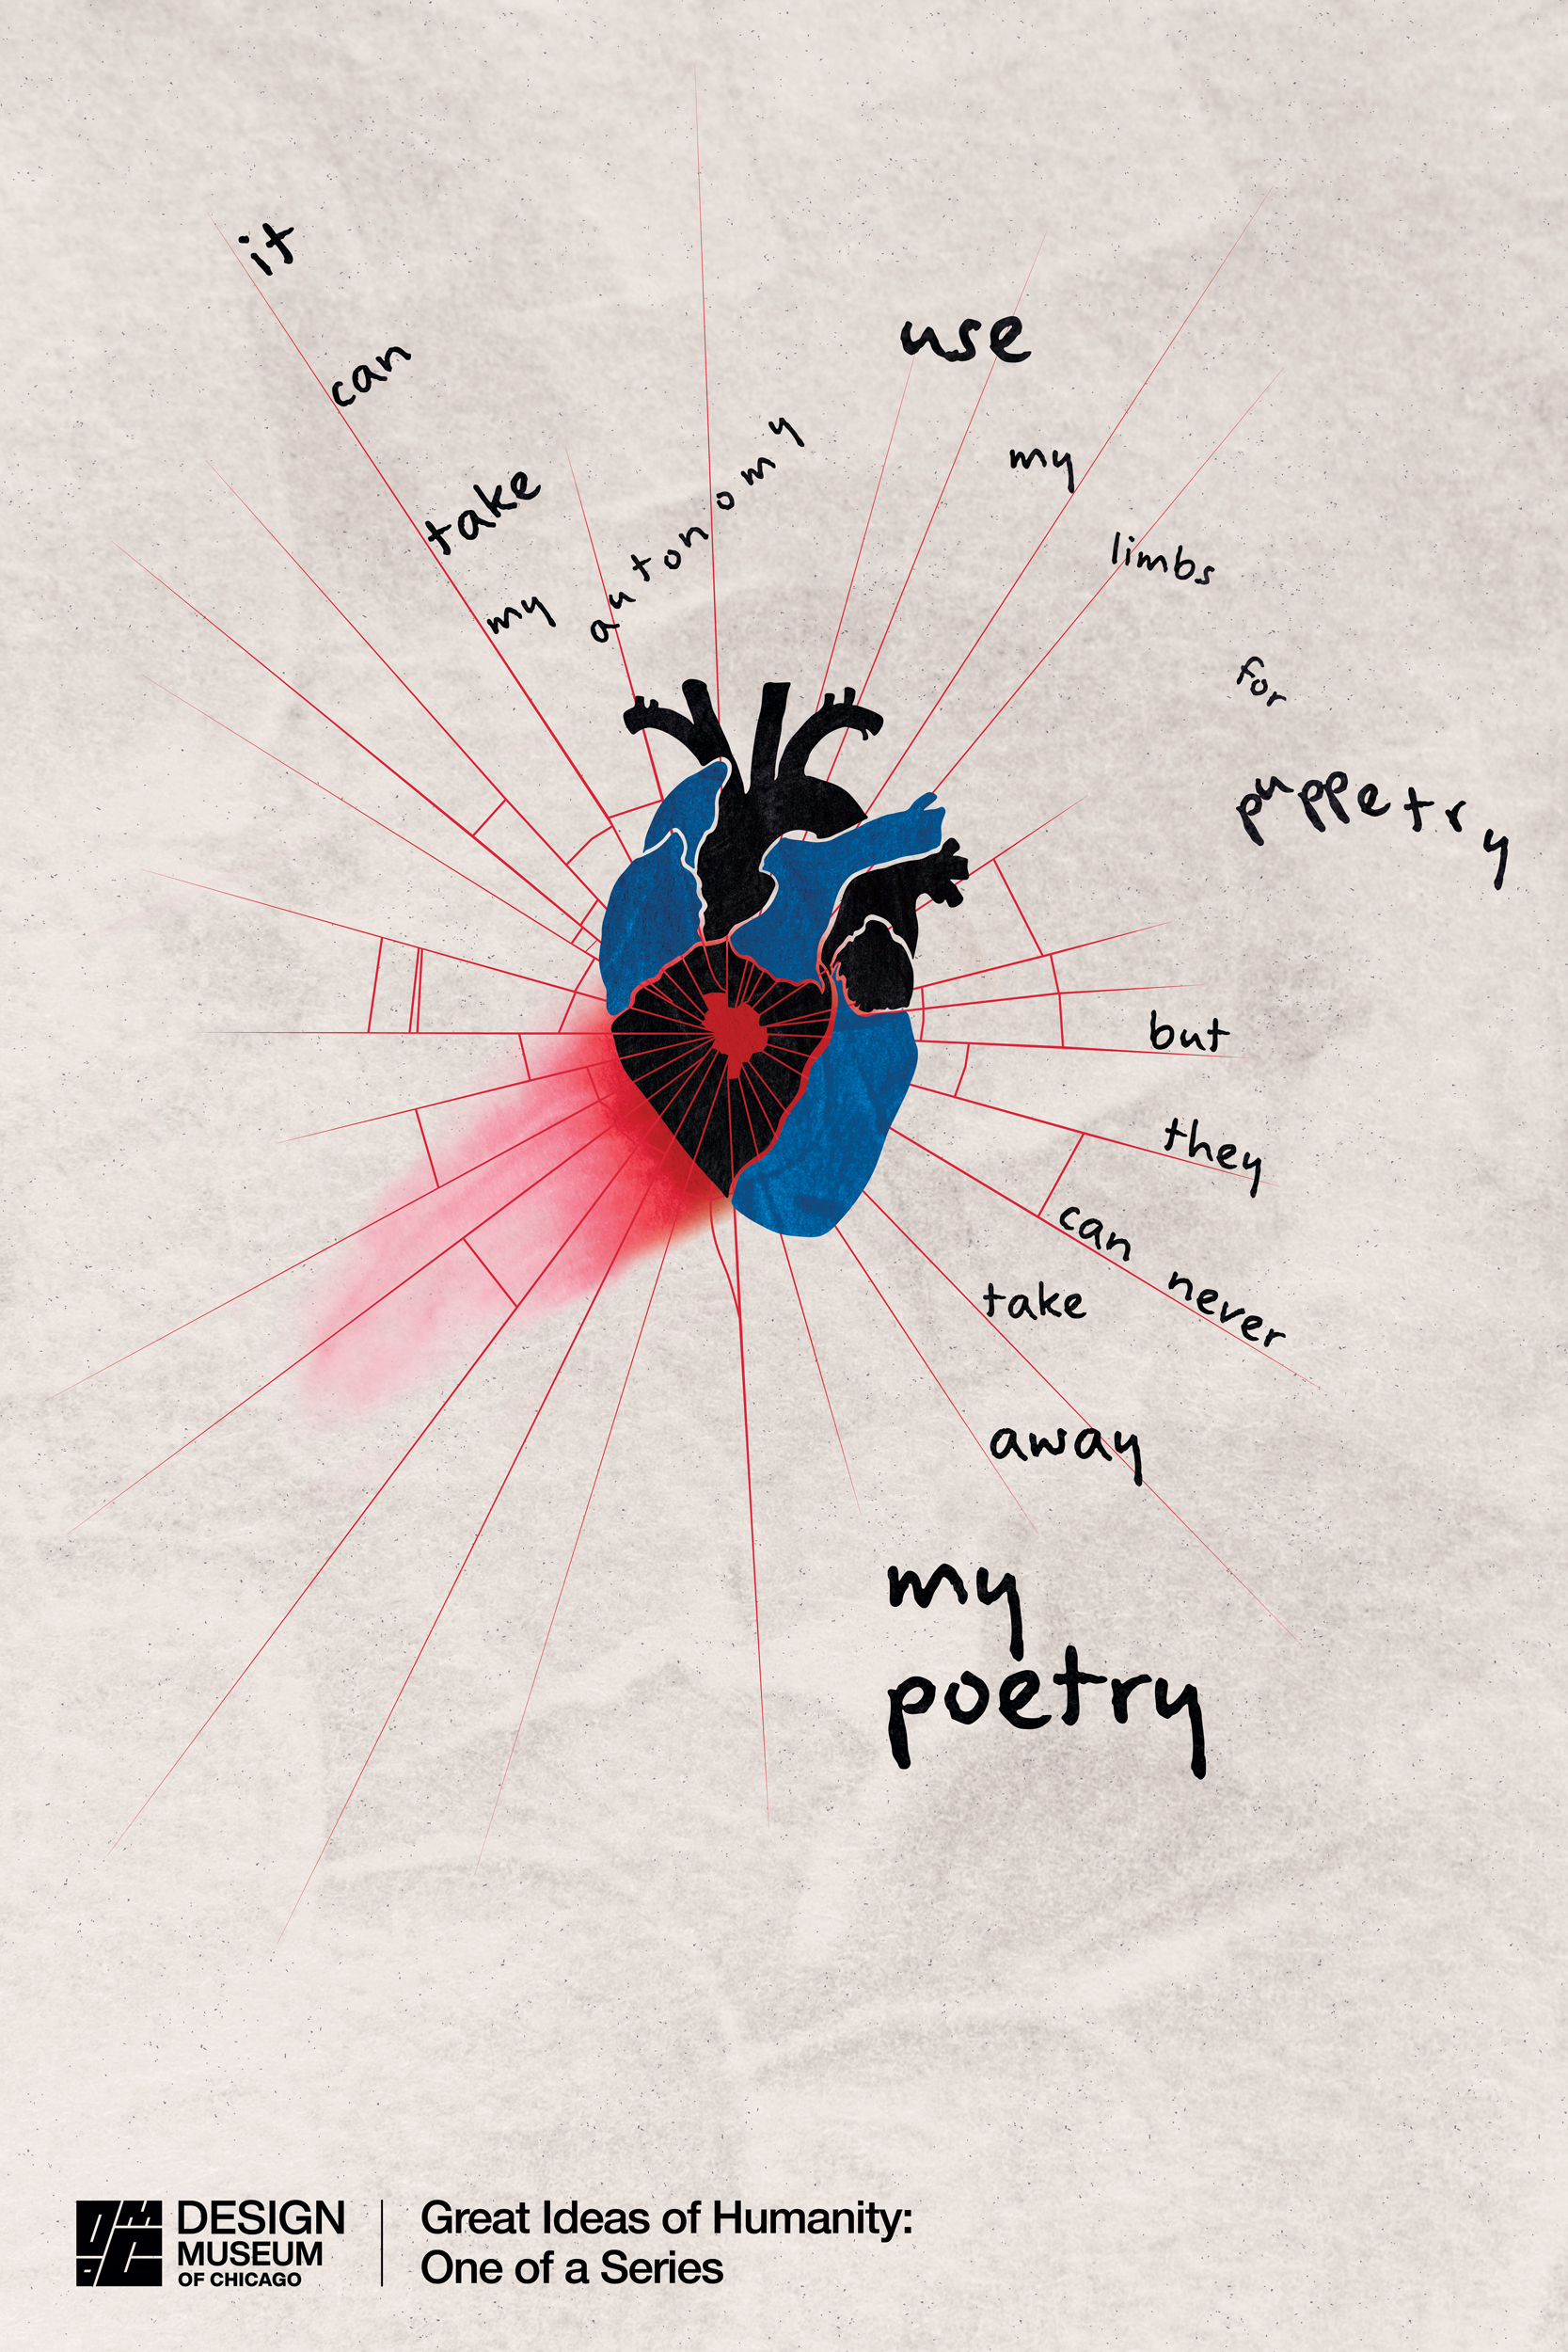 it
can
take
my
autonomy
use
my
limbs
for
puppetry
but
they
can never
take
away
my
poetry
DESIGN
MUSEUM
OF CHICAGO
Great Ideas of Humanity:
One of a Series